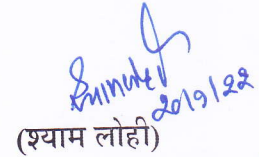 20/9/22
(श्याम लोही)